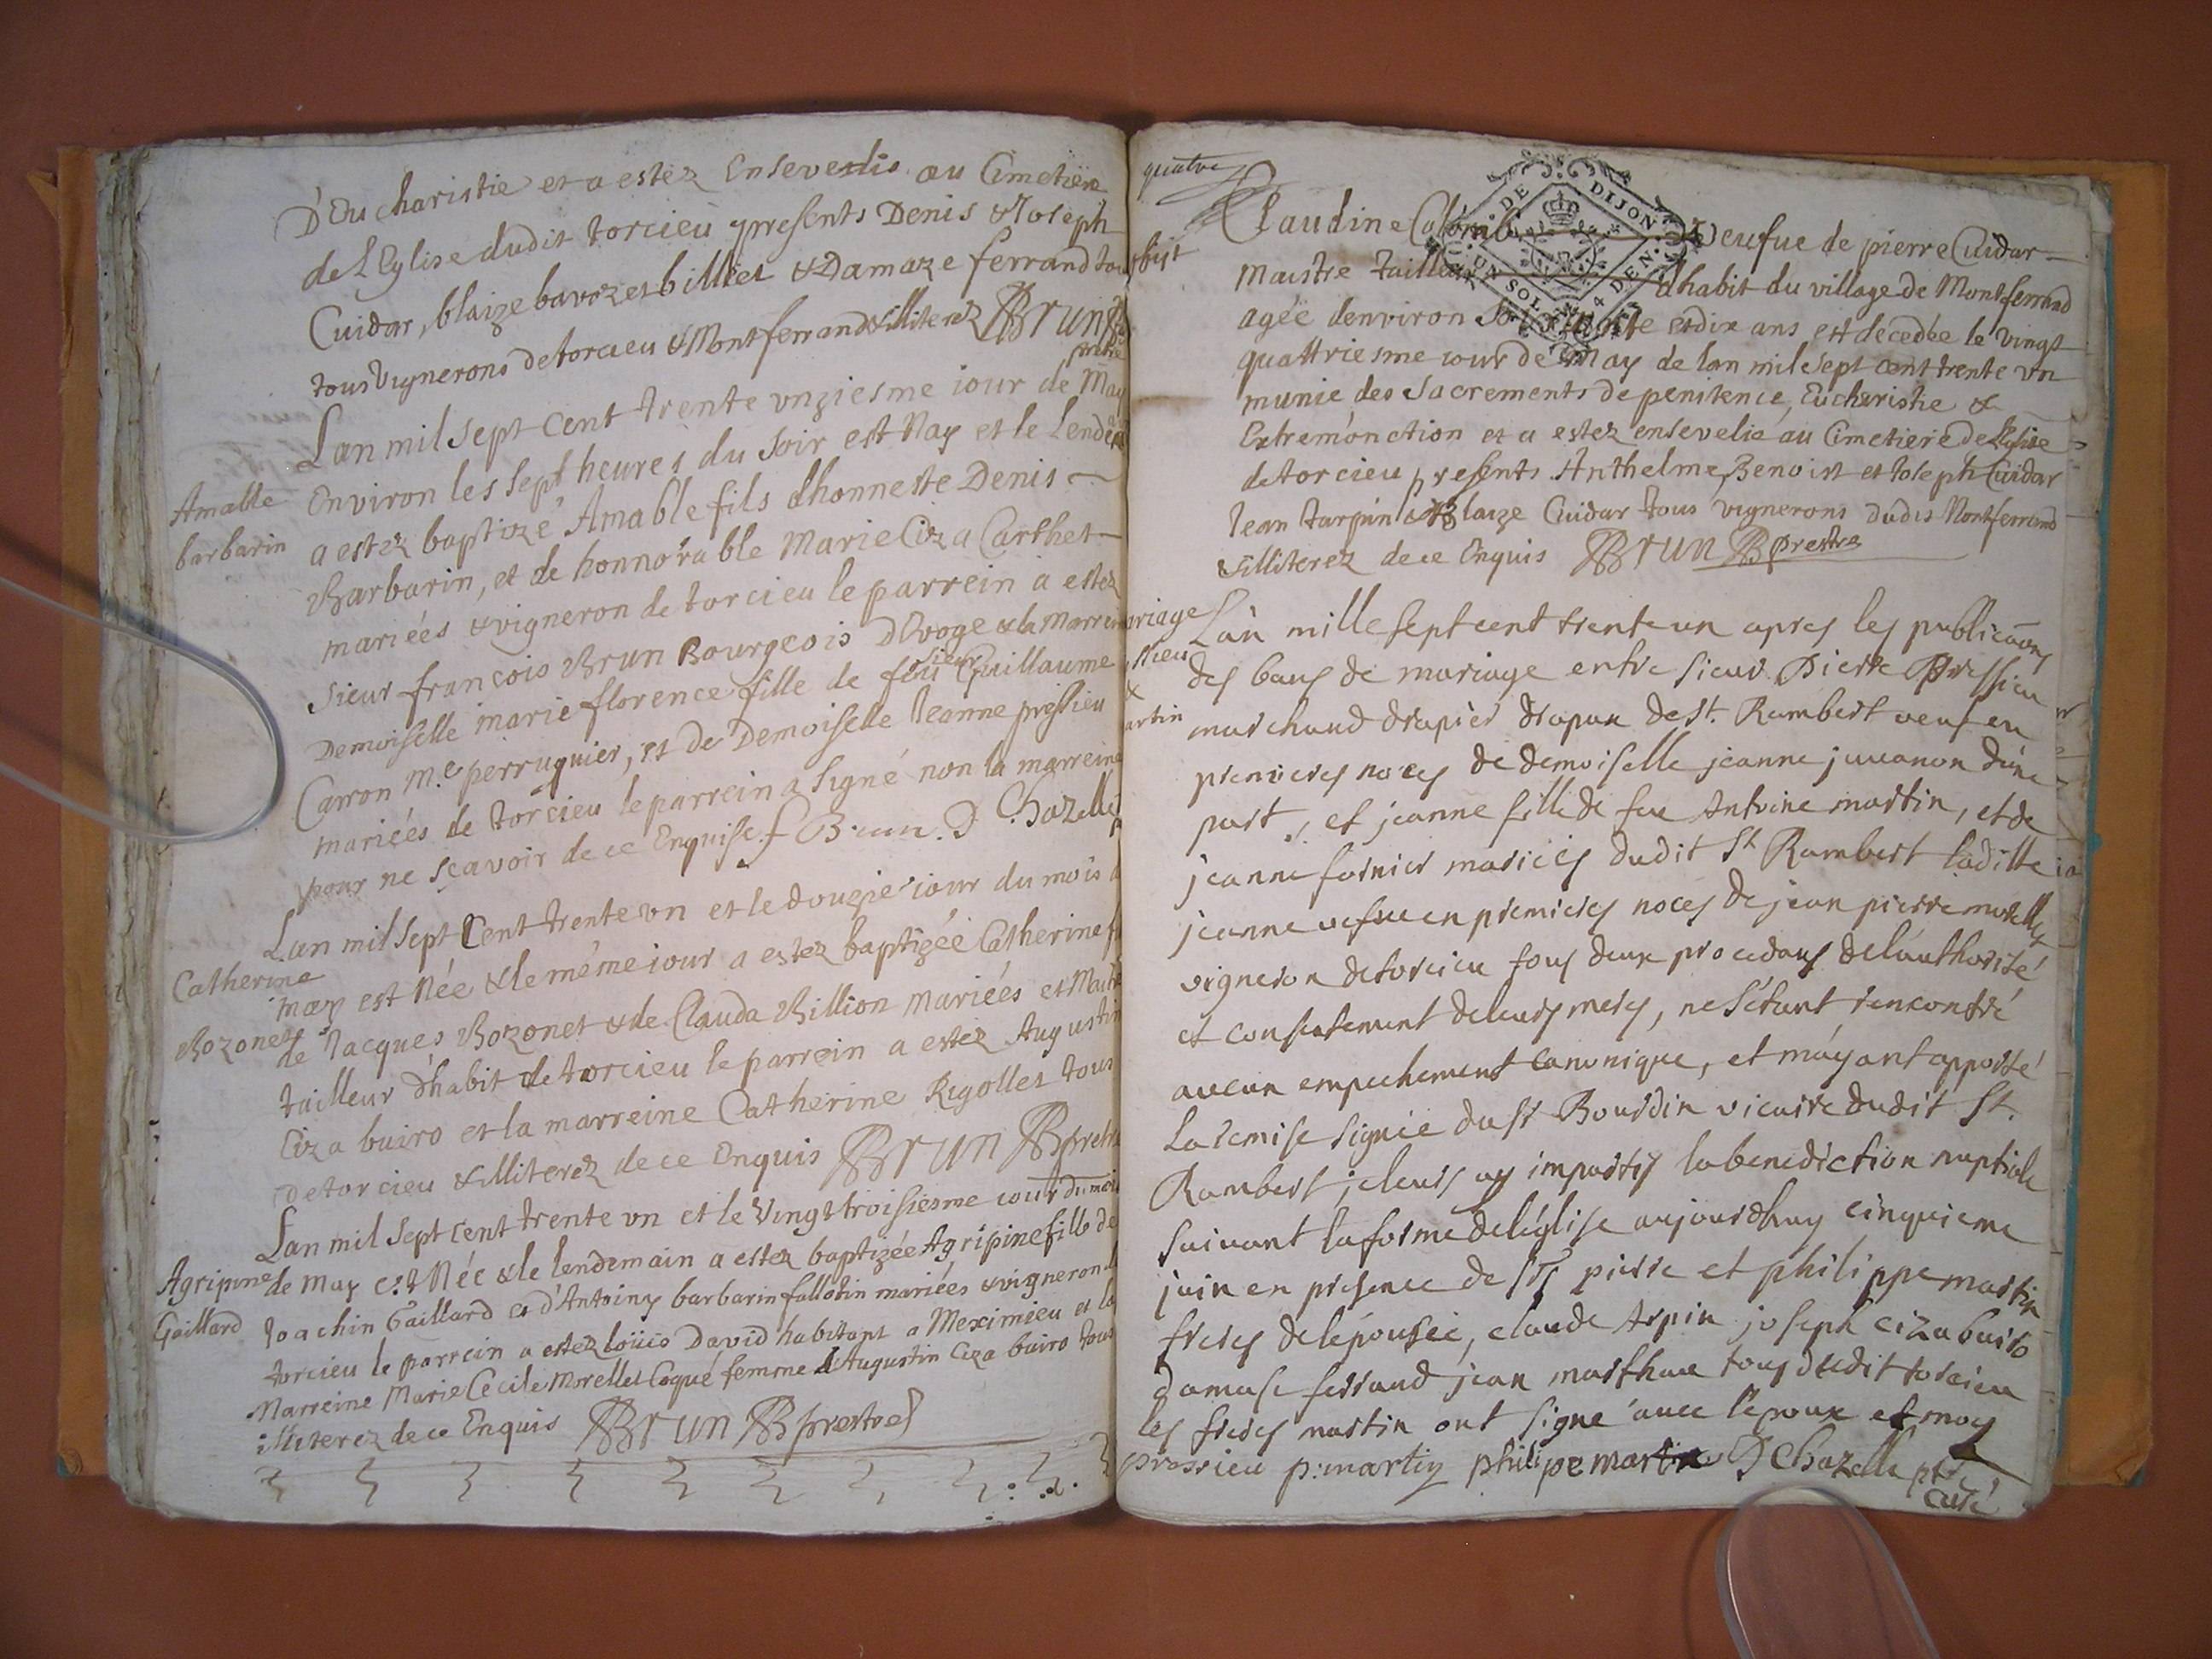 D'Eucharistie et a estez Ensevelis au Cimetiere
de l'Eglise dudit torcieu presents Denis & Joseph
Cuidar, blaize bavozet billiet & Damaze ferrand tous
tous vignerons de torcieu & Montferrand & illiterez BBrun
prestre
Lan mil sept cent trente unziesme iour de May
Environ les sept heures du Soir est Nay et le Lendem
Amable
barbarin
a estez baptizé Amable fils dhonneste Denis
Barbarin, et de honnorable Marie Ciza Carthet
mariées & vigneron de torcieu le parrein a estez
Sieur françois Brun Bourgeois D'Evoge & la Marreine
Demoiselle marie florence fille de feu sieur Guillaume
Carron Me perruquier, et de Demoiselle Jeanne pressieu
mariées de torcieu le parrein a Signé non la marreine
pour ne sçavoir de ce Enquise. f Brun. D Chazelle
Lan mil sept Cent trente un et le douzie iour du mois d
Catherine
Bozonet
may est Née & le même iour a estez baptizée Catherine fi
de Jacques Bozonet & de Clauda Billion Mariées et Maitre
tailleur d'habit de torcieu le parrein a estez Augustin
Ciza buiro et la marreine Catherine Rigollet tous
de torcieu & illiterez de ce Enquis BBrun BBprestre
Lan mil sept cent trente un et le Vingt troisiesme iour du moi
Agripine
Gaillard
de may est Née & le lendemain a estez baptizée Agripine fille de
Joachin Gaillard et d'Antoiny barbarin fallotin mariées & vigneron d
torcieu le parrein a estez loüis David habitant a Meximieu et la
Marreine Marie Cecile Morellet Coqué femme d'Augustin Ciza buiro tous
illiterez de ce Enquis BBrun BBprestre
quatre
Claudine Colomb Veufue de pierre Cuidar
DE DIJON
UN SOL 4 DEN
Maistre tailleur dhabit du village de Montferrand
agée denviron Soixante et dix ans est decedée le vingt
quattriesme iour de May de lan mil sept cent trente un
munie des Sacrements de penitence, Eucharistie &
Extremonction et a estez ensevelie au Cimetiere de l'Eglise
de torcieu presents Anthelme, Benoist et Joseph Cuidar
Jean tarpin & Blaize Cuidar tous vignerons dudit Montferrand
& illiterez de ce Enquis BBrun BBprestre
ariage
ssieu
&
artin
Lan mille sept cent trente un apres les publicaons
des bans de mariage entre sieur Pierre Pressieu
marchand drapier drapan de st. Rambert veuf en
premieres noces de demoiselle jeanne juvanon dune
part, et jeanne fille de feu Antoine martin, et de
jeanne fornier mariées dudit St Rambert ladille
jeanne vefue en premieres noces de jean pierre morellet
vigneron de torcieu tous deux procedans de l'authorité
et consentement de leurs meres, ne s'étant rencontré
aucun empechement canonique, et m'ayant apporté
La remise signée du sr Bourdin vicaire dudit St.
Rambert je leurs ay impartis la benediction nuptiale
suivant la forme de l'église aujourdhuy cinquieme
juin en presence de srs pierre et philippe martin
freres de l'épousée, claude Arpin joseph ciza buiro
damase ferrand jean marthoue tous dudit torcieu
les freres martin ont signé avec l'epoux et moy
pressieu p:martin philipe martin D Chazelle ptre
curé